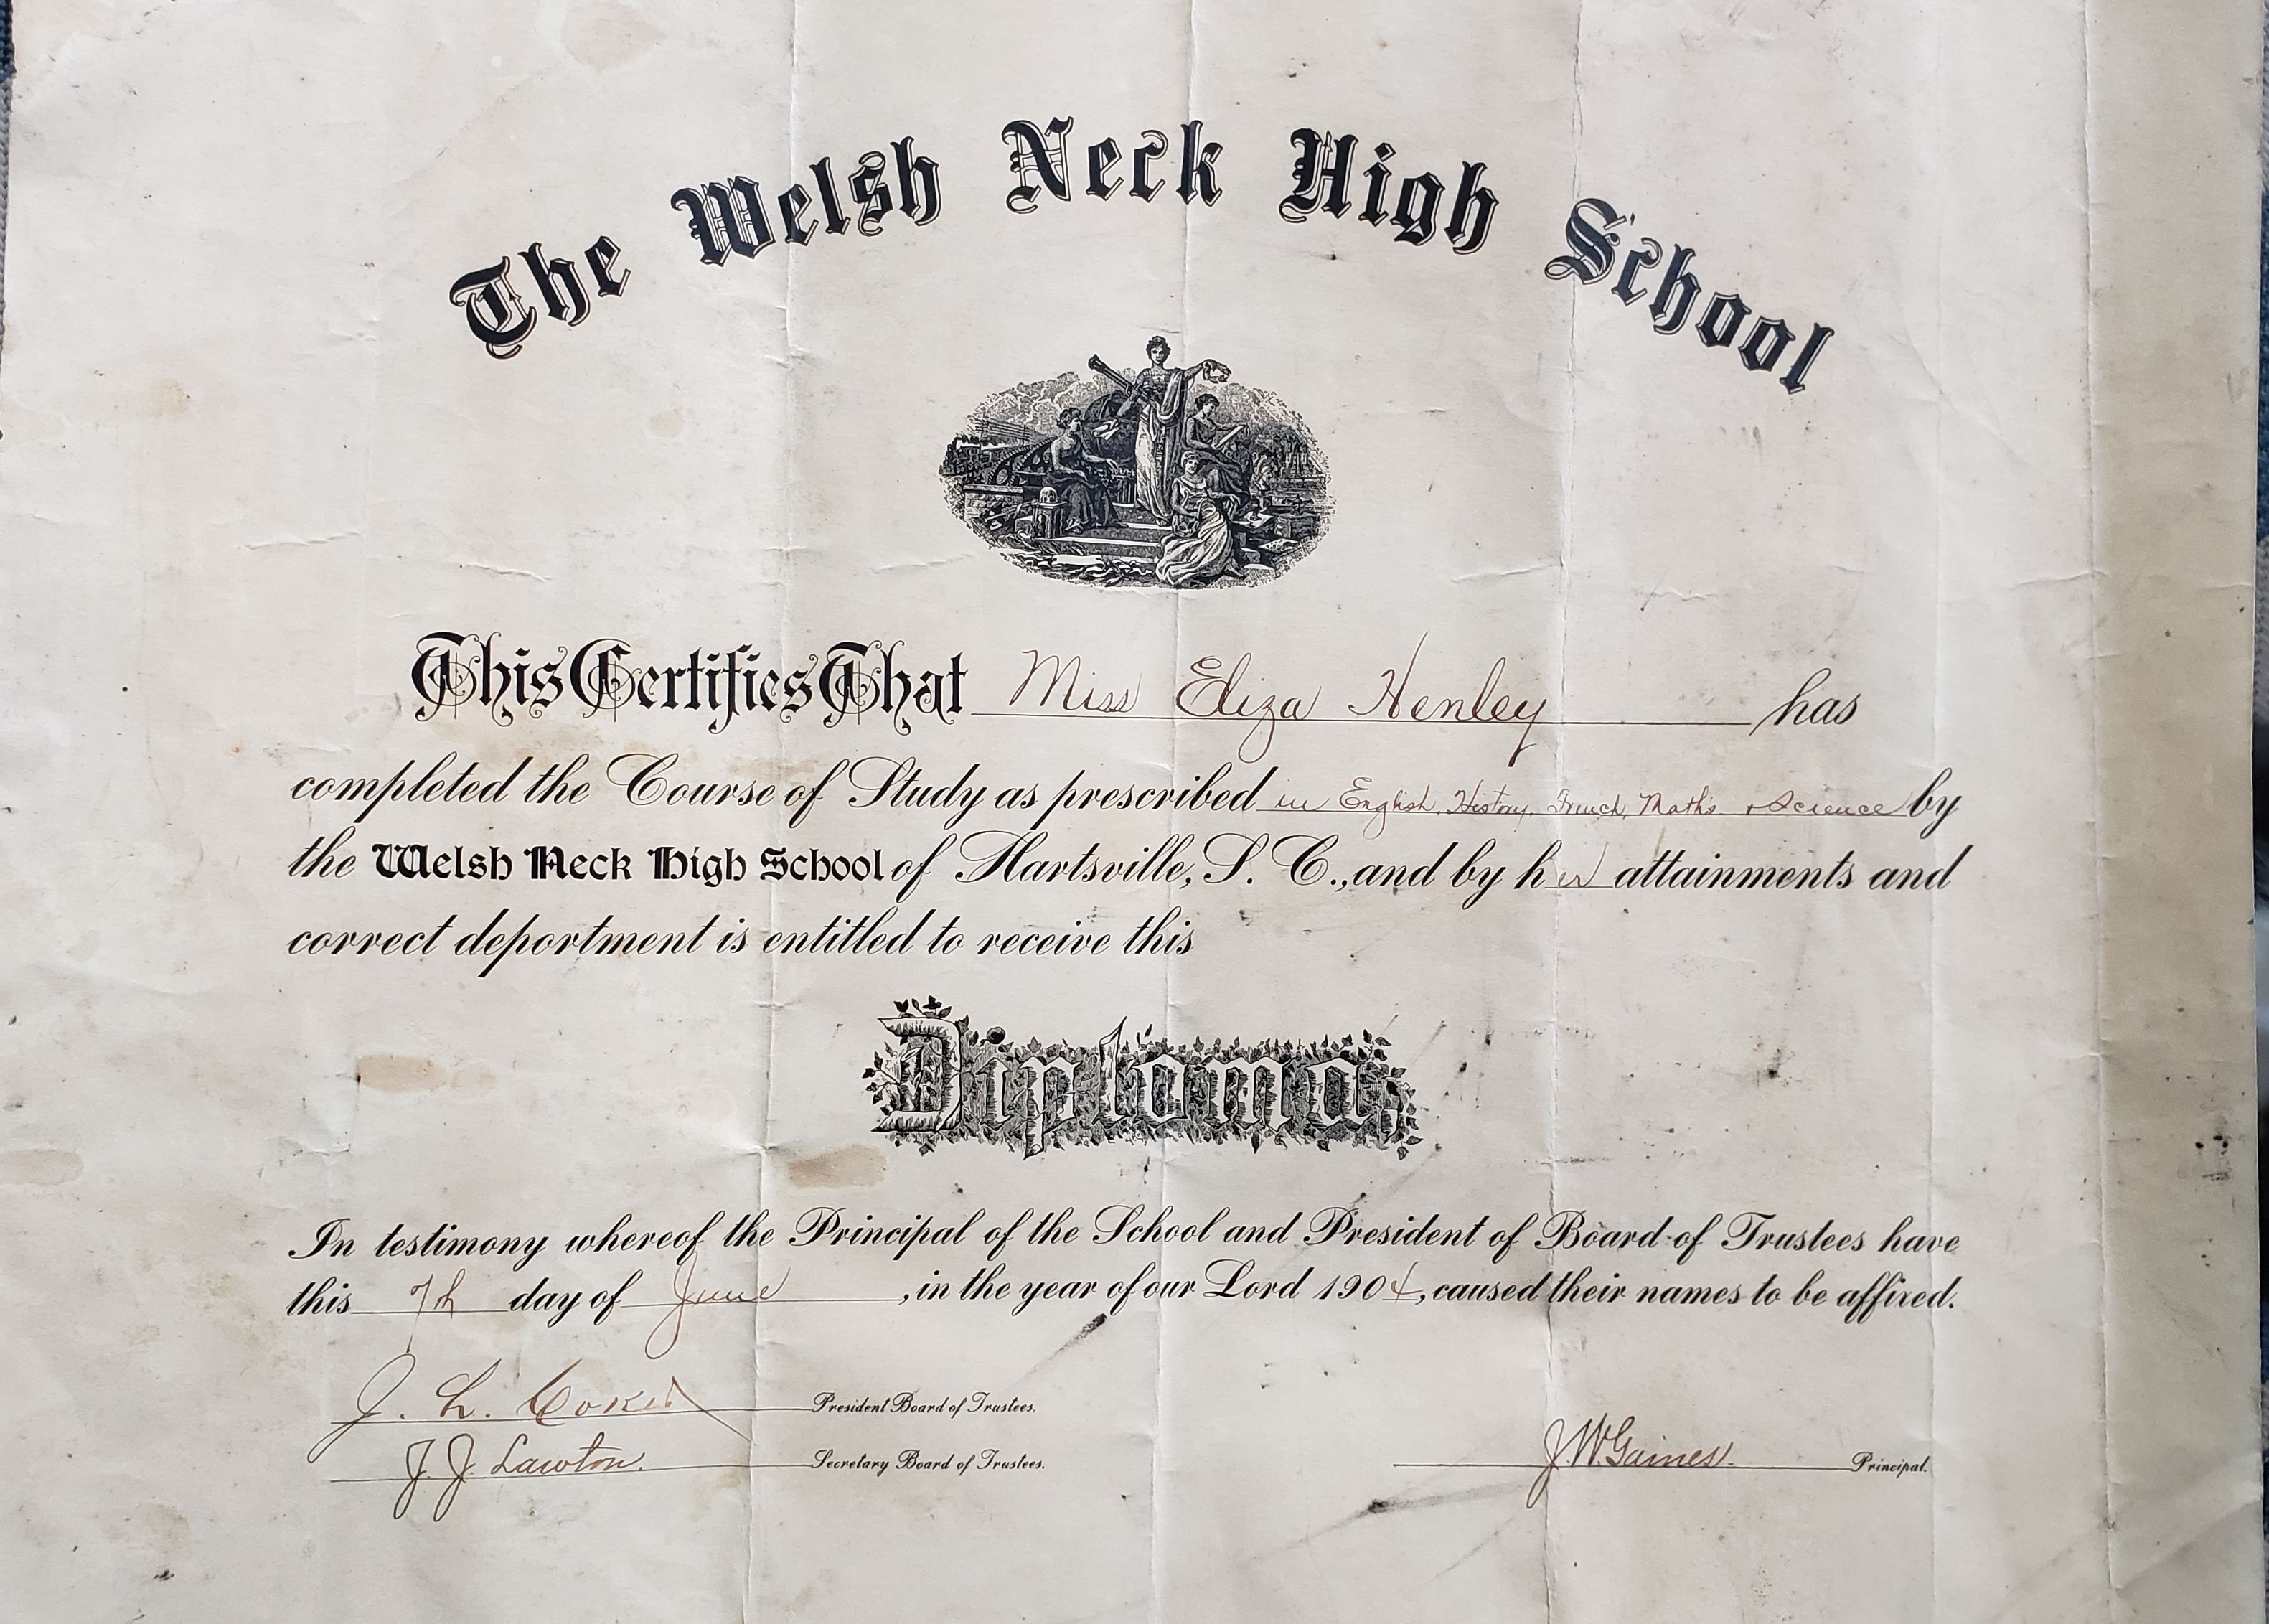 The Welsh Neck High School
This Certifies That Miss Eliza Henley has
completed the Course of Study as prescribed in English, History, French, Maths. & Science by
the Welsh Neck High School of Hartsville, S. C., and by her attainments and
correct deportment is entitled to receive this
Diploma
In testimony whereof the Principal of the School and President of Board of Trustees have
this 7th day of June, in the year of our Lord 1904, caused their names to be affixed.
J. L. Coker President Board of Trustees.
J. J. Lawton. Secretary Board of Trustees.
J. W. Gaines. Principal.